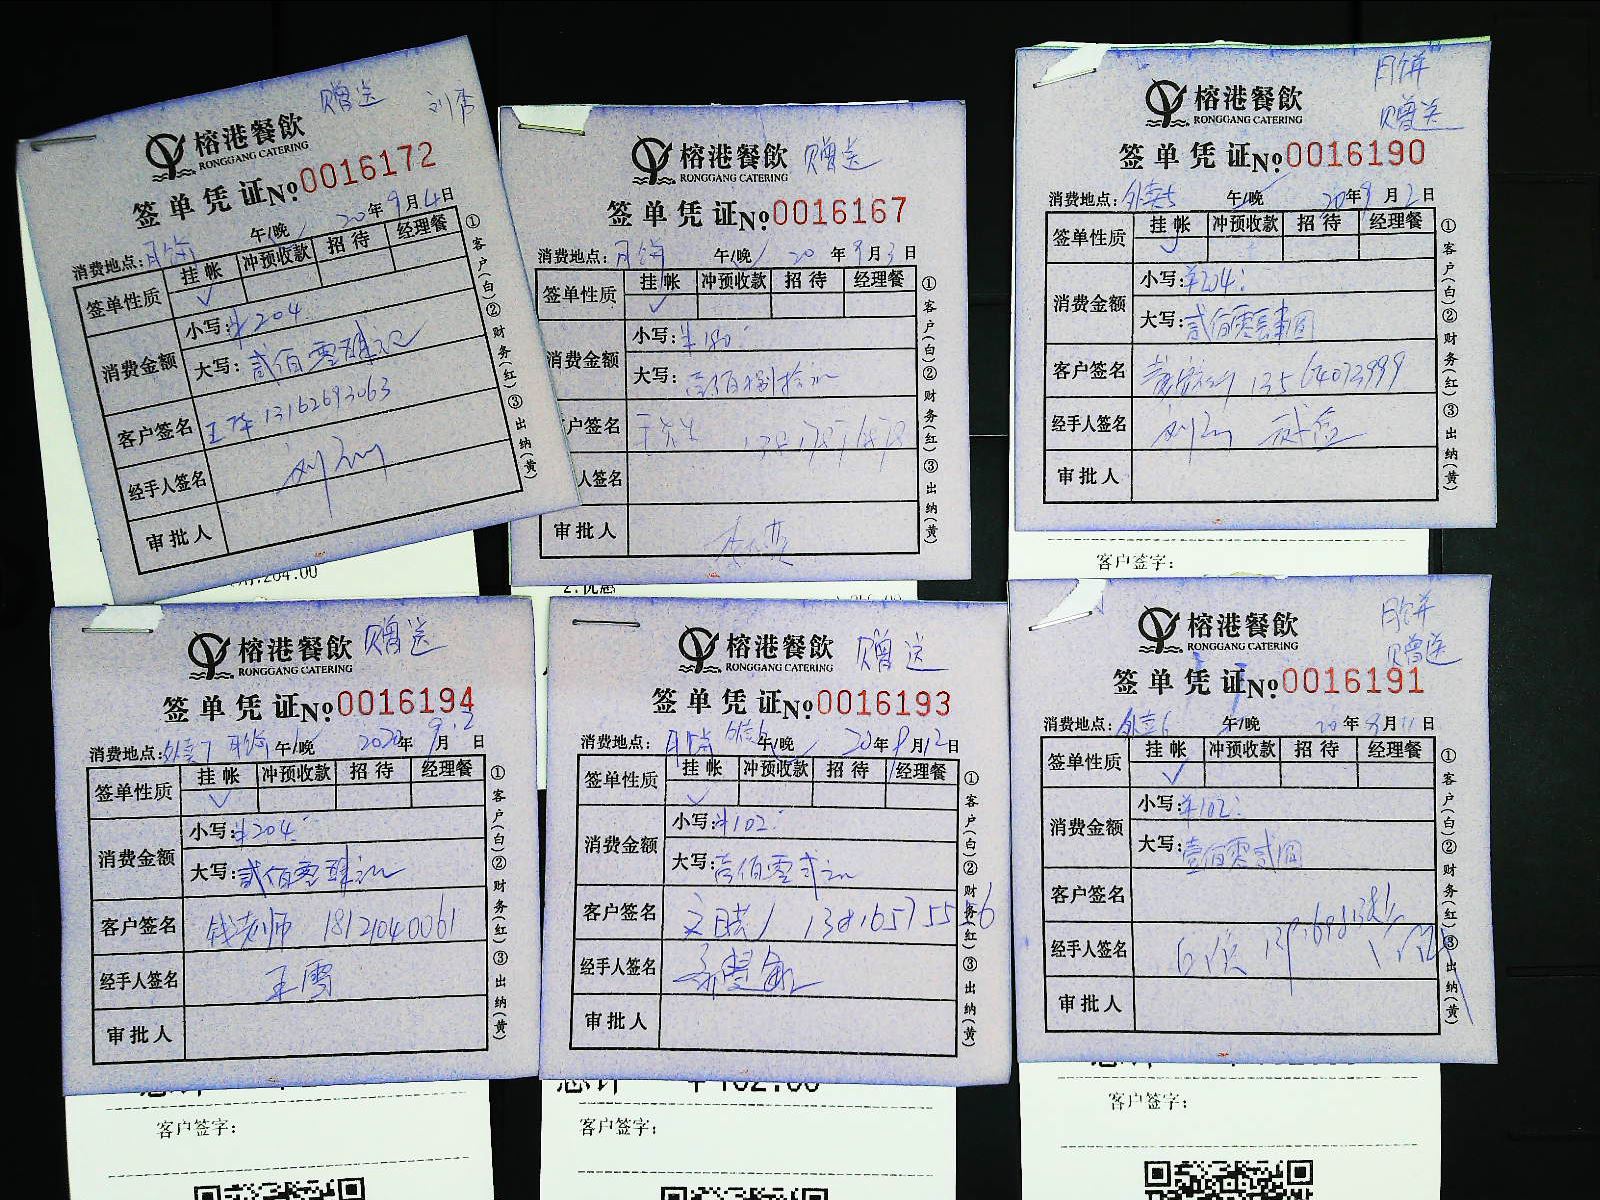 赠送
榕港餐飲
RONGGANG CATERING
签单凭证 No.0016172
消费地点: 月饼 午/晚 20年9月4日
签单性质 挂帐 冲预收款 招待 经理餐
✓
消费金额 小写: ¥204
大写: 贰佰零肆元
客户签名 13162693063
经手人签名
审批人
①客户(白)②财务(红)③出纳(黄)
204.00
榕港餐飲 赠送
RONGGANG CATERING
签单凭证 No.0016167
消费地点: 月饼 午/晚 20年9月3日
签单性质 挂帐 冲预收款 招待 经理餐
✓
消费金额 小写: ¥180
大写: 壹佰捌拾元
户签名
人签名
审批人
①客户(白)②财务(红)③出纳(黄)
月饼
赠送
榕港餐飲
RONGGANG CATERING
签单凭证 No.0016190
消费地点: 外卖5 午/晚 20年9月2日
签单性质 挂帐 冲预收款 招待 经理餐
✓
消费金额 小写: ¥204
大写: 贰佰零肆圆
客户签名 13564073999
经手人签名
审批人
①客户(白)②财务(红)③出纳(黄)
客户签字:
榕港餐飲 赠送
RONGGANG CATERING
签单凭证 No.0016194
消费地点: 外卖7 月饼 午/晚 2020年9月12日
签单性质 挂帐 冲预收款 招待 经理餐
✓
消费金额 小写: ¥204
大写: 贰佰零肆元
客户签名 钱老师 18121040061
经手人签名 王雪
审批人
①客户(白)②财务(红)③出纳(黄)
客户签字:
榕港餐飲 赠送
RONGGANG CATERING
签单凭证 No.0016193
消费地点: 月饼 外卖6 午/晚 20年9月12日
签单性质 挂帐 冲预收款 招待 经理餐
✓
消费金额 小写: ¥102
大写: 壹佰零贰元
客户签名 13816575556
经手人签名
审批人
①客户(白)②财务(红)③出纳(黄)
总计 ¥102.00
客户签字:
月饼
赠送
榕港餐飲
RONGGANG CATERING
签单凭证 No.0016191
消费地点: 外卖6 午/晚 20年9月11日
签单性质 挂帐 冲预收款 招待 经理餐
✓
消费金额 小写: ¥102
大写: 壹佰零贰圆
客户签名
经手人签名
审批人
①客户(白)②财务(红)③出纳(黄)
客户签字: